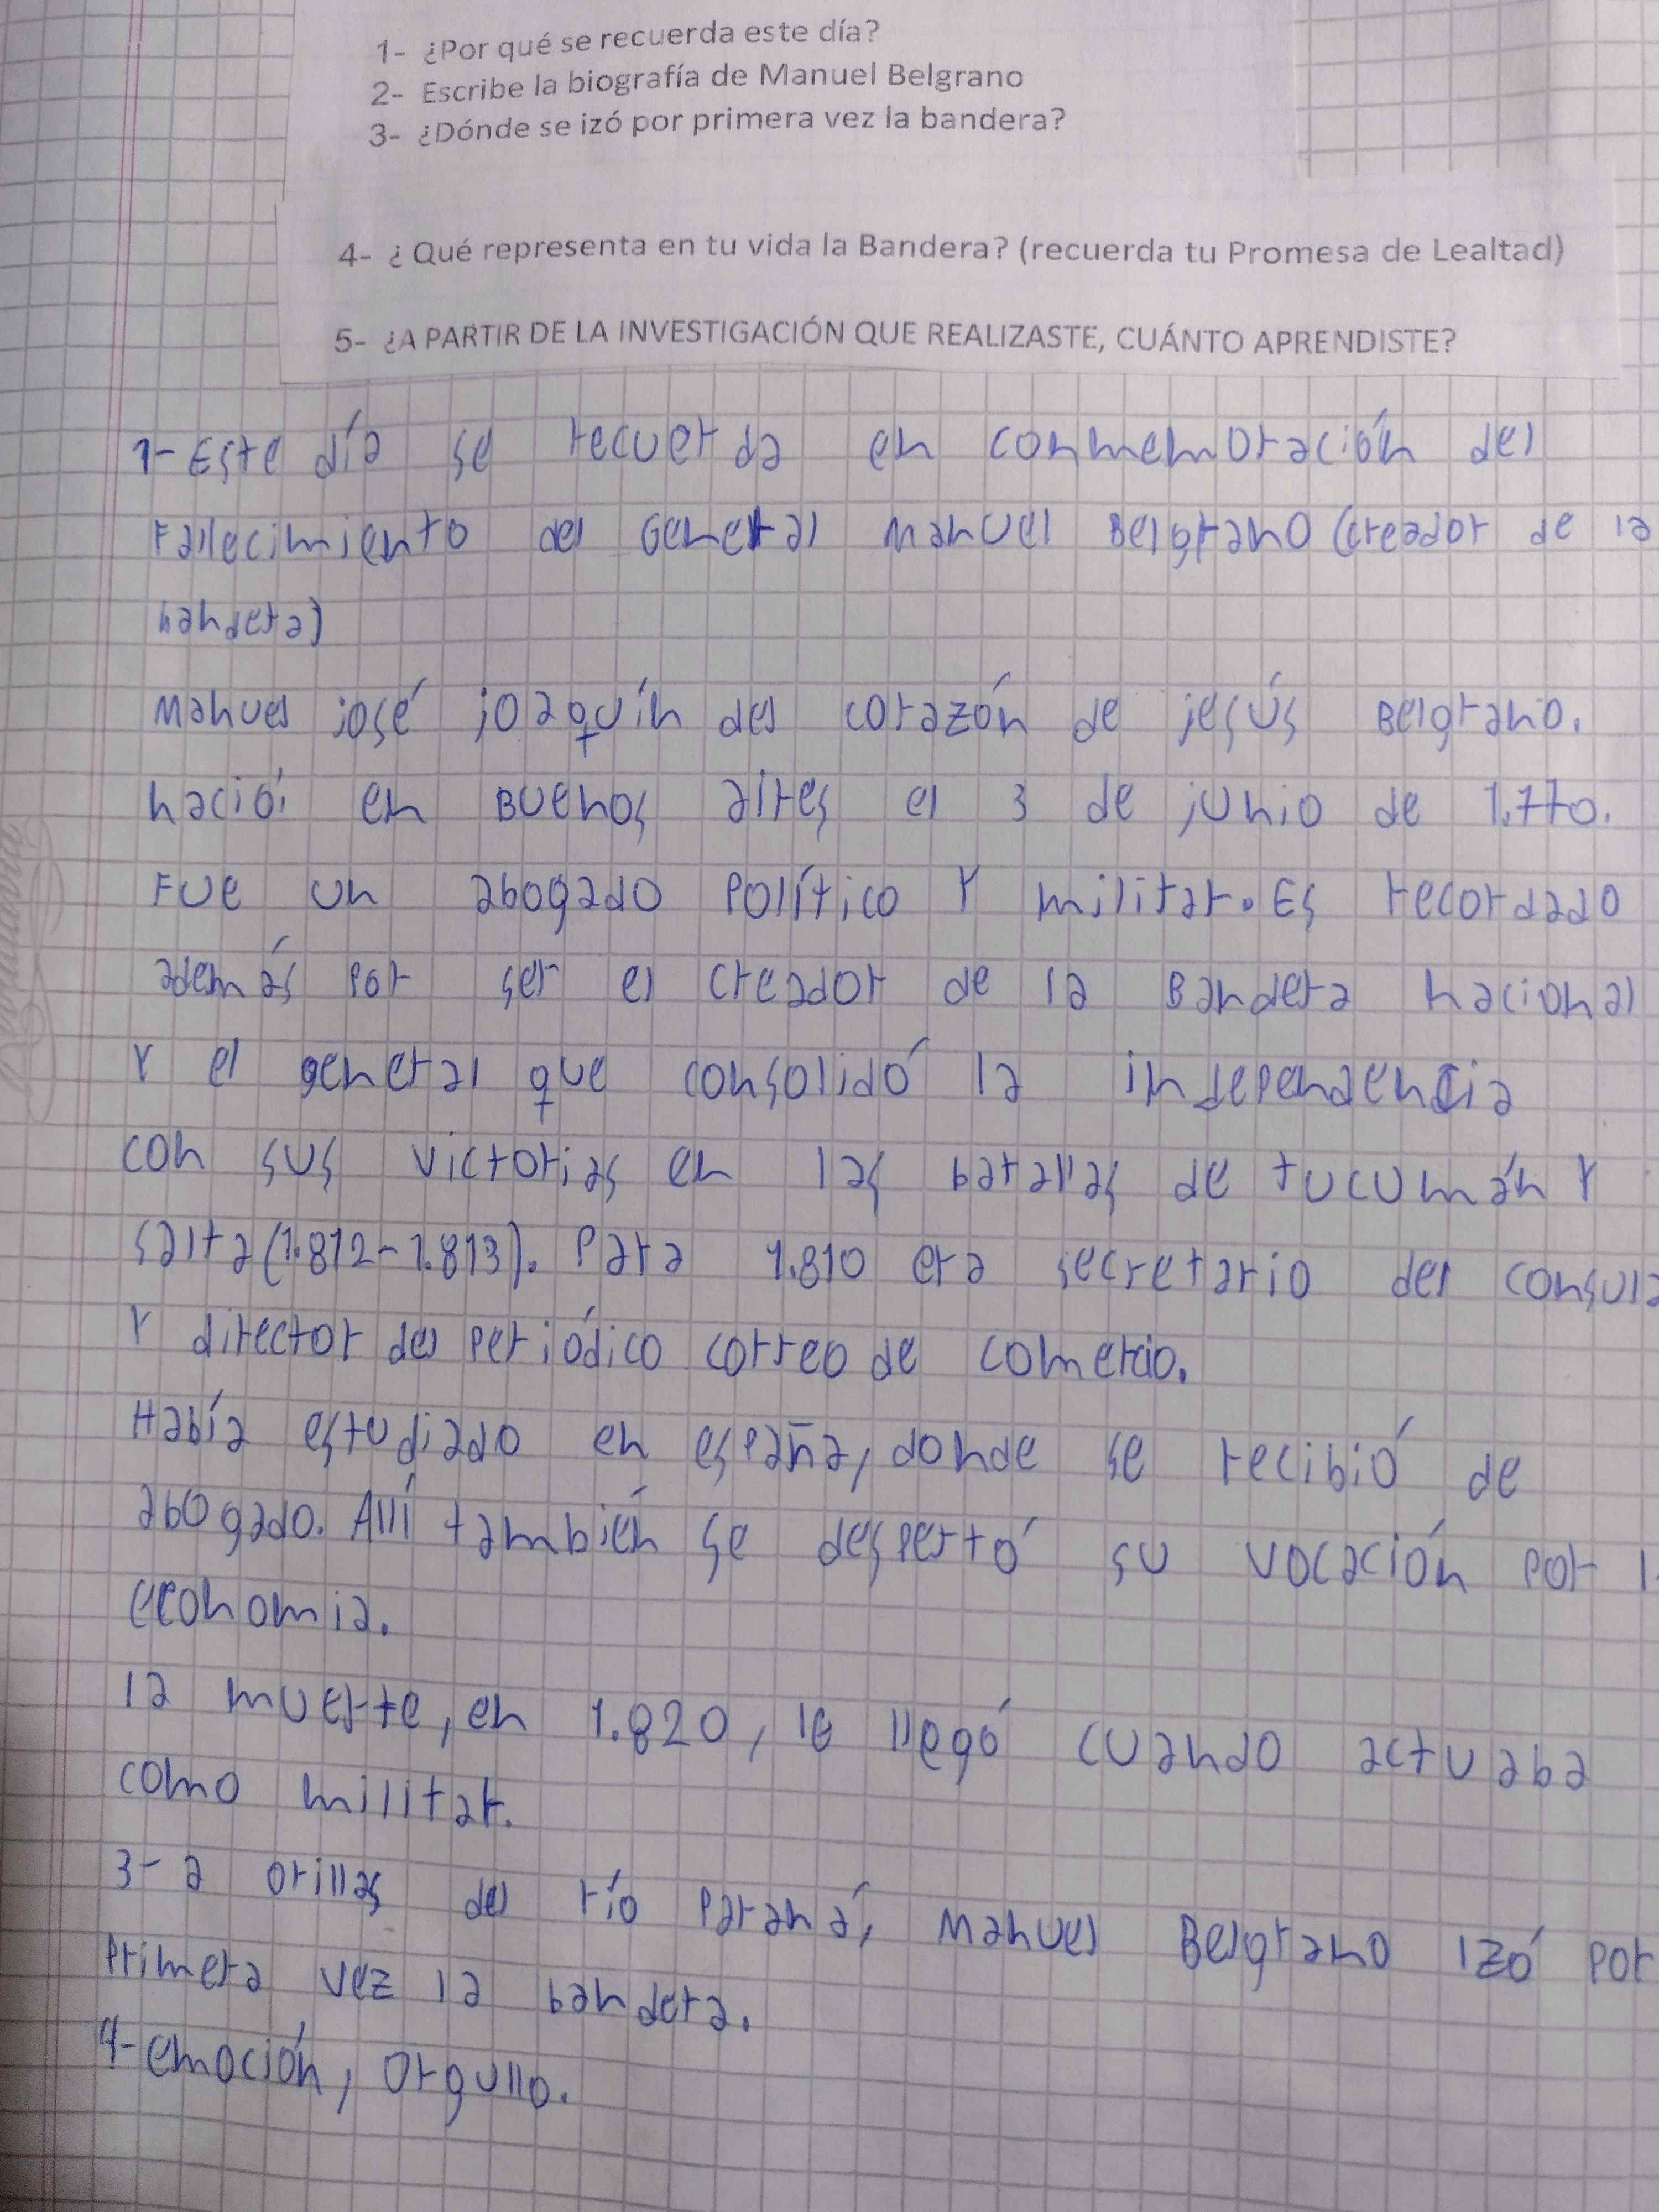 1- ¿Por qué se recuerda este día?
2- Escribe la biografía de Manuel Belgrano
3- ¿Dónde se izó por primera vez la bandera?
4- ¿ Qué representa en tu vida la Bandera? (recuerda tu Promesa de Lealtad)
5- ¿A PARTIR DE LA INVESTIGACIÓN QUE REALIZASTE, CUÁNTO APRENDISTE?
1- Este día se recuerda en conmemoración del
Fallecimiento del General Manuel Belgrano (creador de la
bandera)
Manuel josé joaquín del corazón de jesús Belgrano.
nació en Buenos aires el 3 de junio de 1.770.
Fue un abogado Político Y militar. Es recordado
además Por ser el creador de la Bandera nacional
Y el general que consolidó la independencia
con sus victorias en las batallas de tucumán Y
salta (1.812-1.813). Para 1.810 era secretario del consula
Y director del Periódico correo de comercio.
Había estudiado en españa, donde se recibió de
abogado. Allí también se despertó su vocación por l
economia.
la muerte, en 1.820, le llegó cuando actuaba
como militar.
3- a orillas del río Paraná, Manuel Belgrano izó por
Primera vez la bandera.
4- emoción, orgullo.